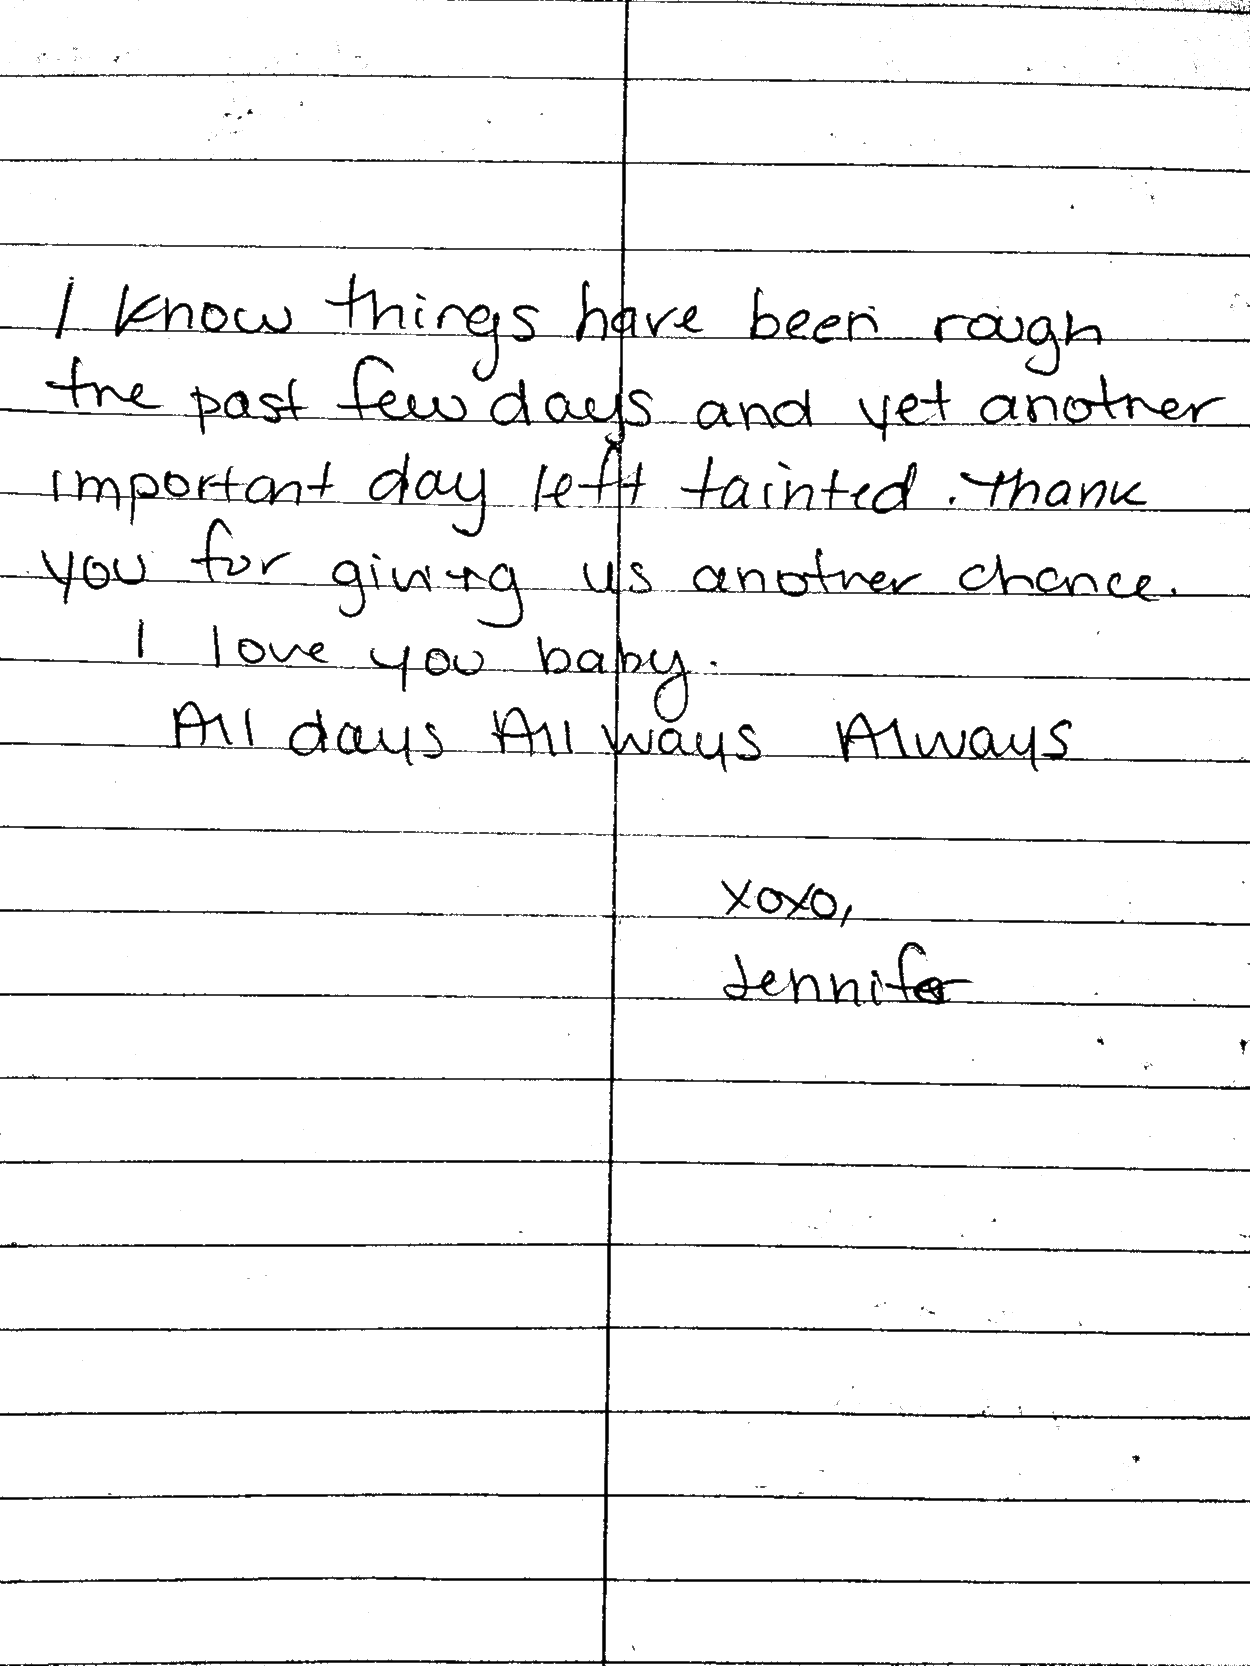 I know things have been rough
the past few days and yet another
important day left tainted. Thank
you for giving us another chance.
I love you baby.
All days All ways Always
xoxo,
Jennifer